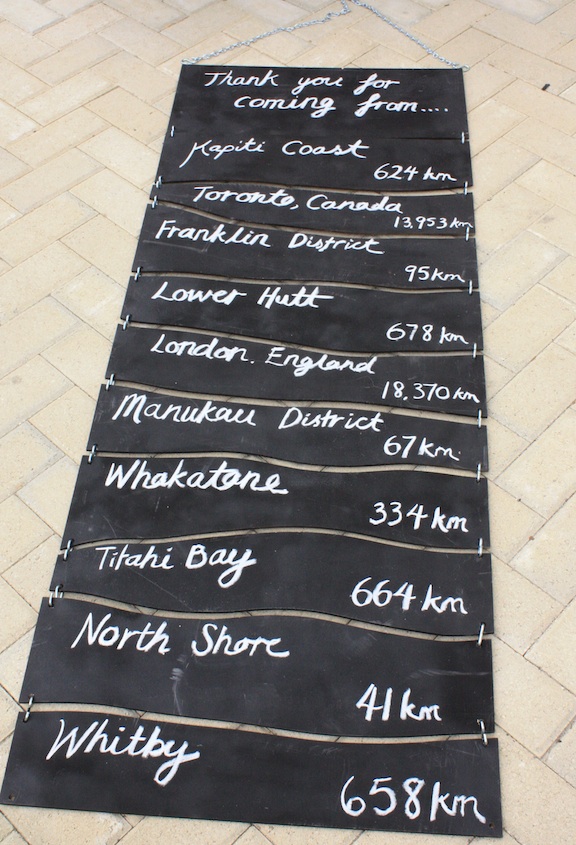 Thank you for
coming from....
Kapiti Coast
624 km
Toronto, Canada
13,953 km
Franklin District
95 km
Lower Hutt
678 km
London. England
18,370 km
Manukau District
67 km.
Whakatane
334 km
Titahi Bay
664 km
North Shore
41 km
Whitby
658 km